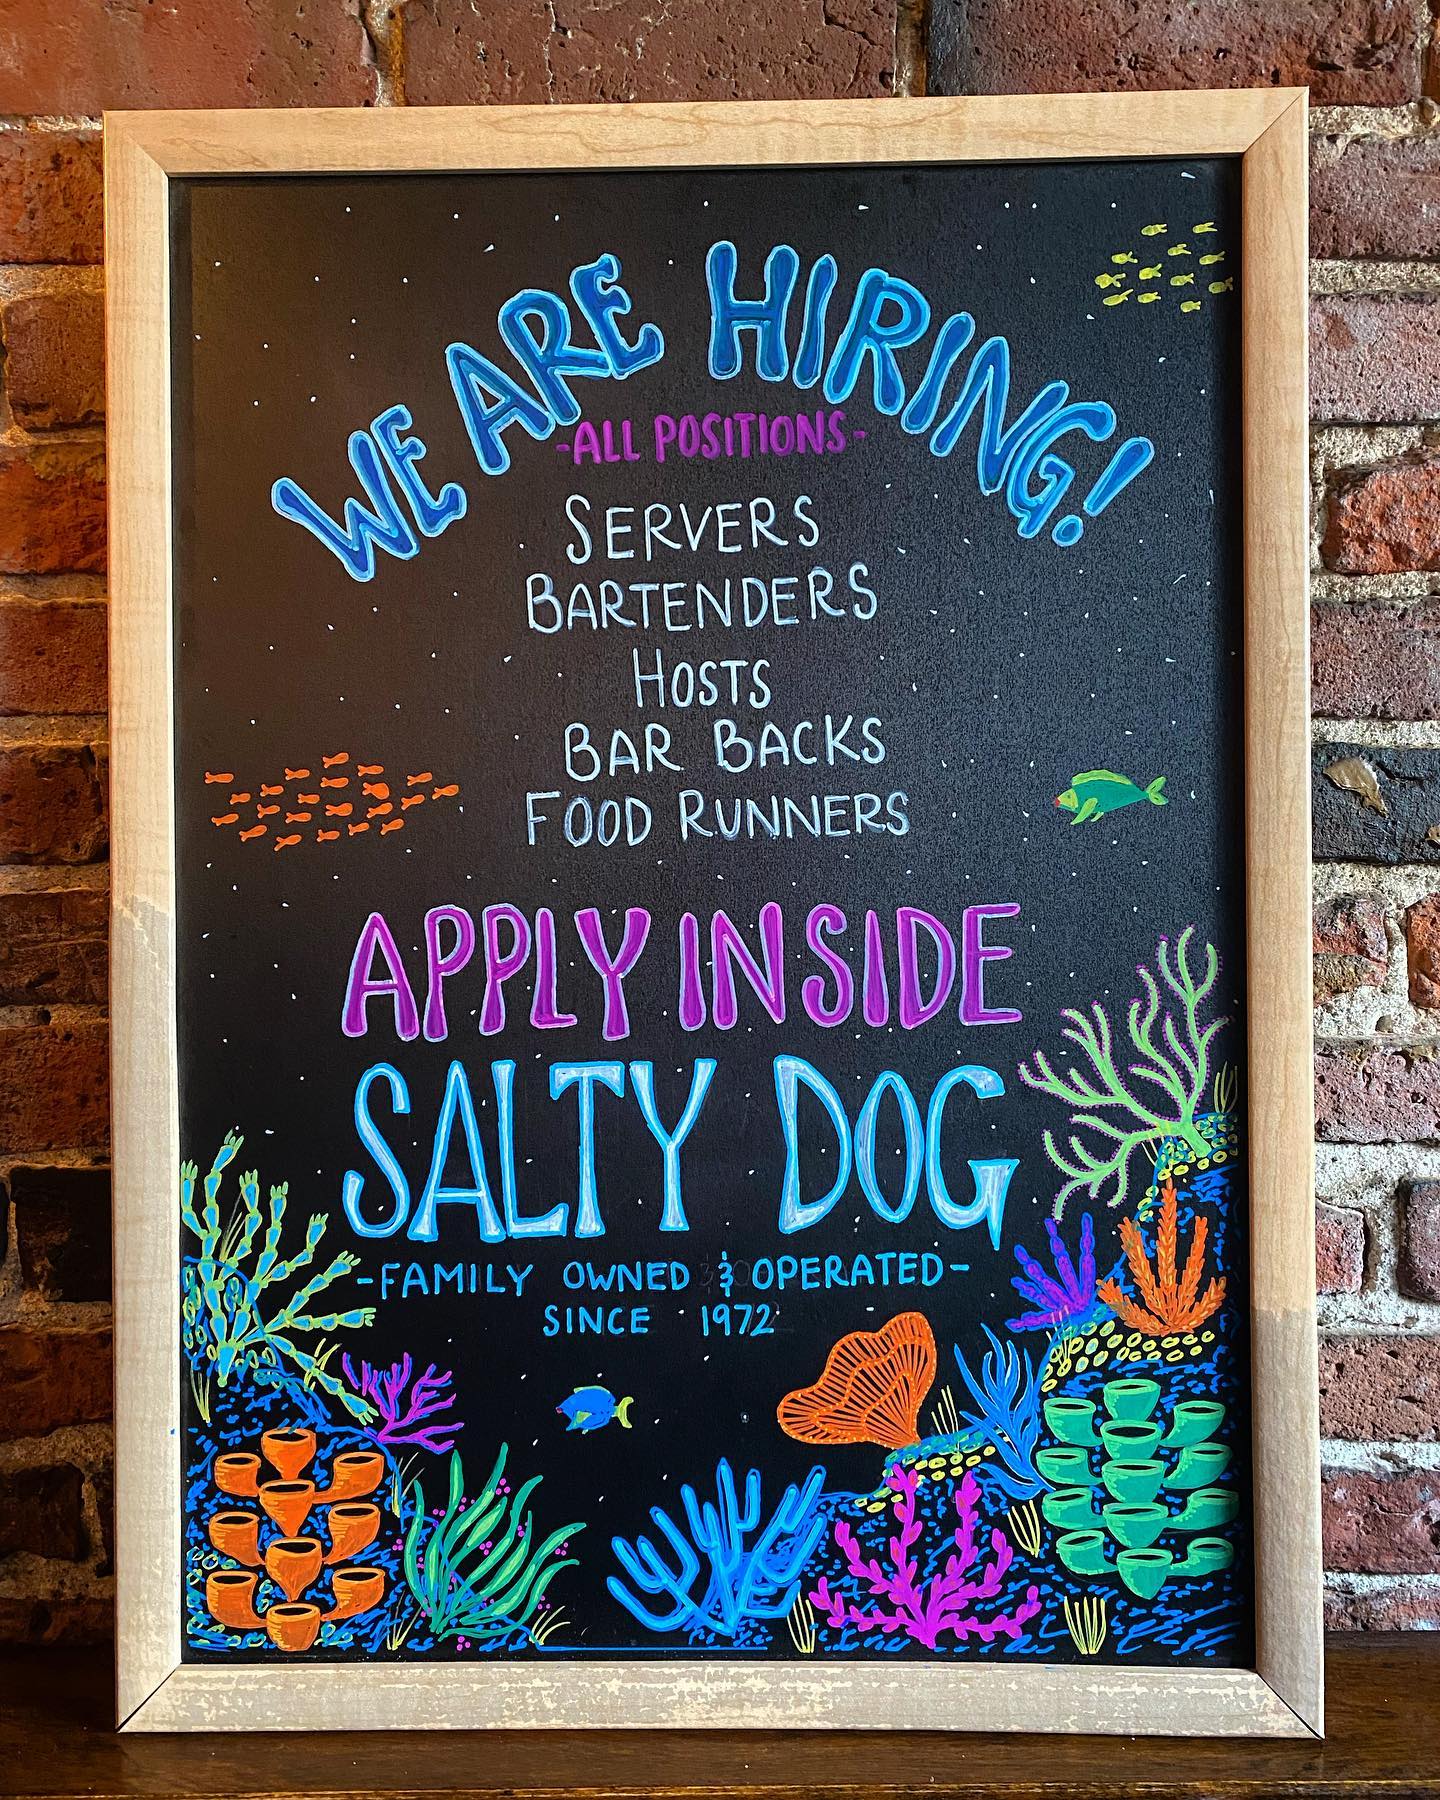 WE ARE HIRING!
-ALL POSITIONS-
SERVERS
BARTENDERS
HOSTS
BAR BACKS
FOOD RUNNERS
APPLY INSIDE
SALTY DOG
-FAMILY OWNED & OPERATED-
SINCE 1972